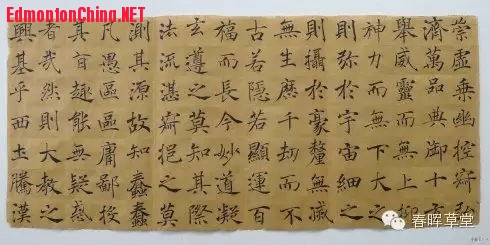 EdmontonChina.NET
崇虛乘幽控寂弘
濟萬品典御十方
舉威靈而無上抑
神力而無下大之
則彌於宇宙細之
則攝於豪釐無滅
無生歷千劫而不
古若隱若顯運百
福而長今妙道凝
玄遵之莫知其際
法流湛寂挹之莫
測其源故知蠢蠢
凡愚區區庸鄙投
其旨趣能無疑惑
者哉然則大教之
興基乎西土騰漢
春晖草堂